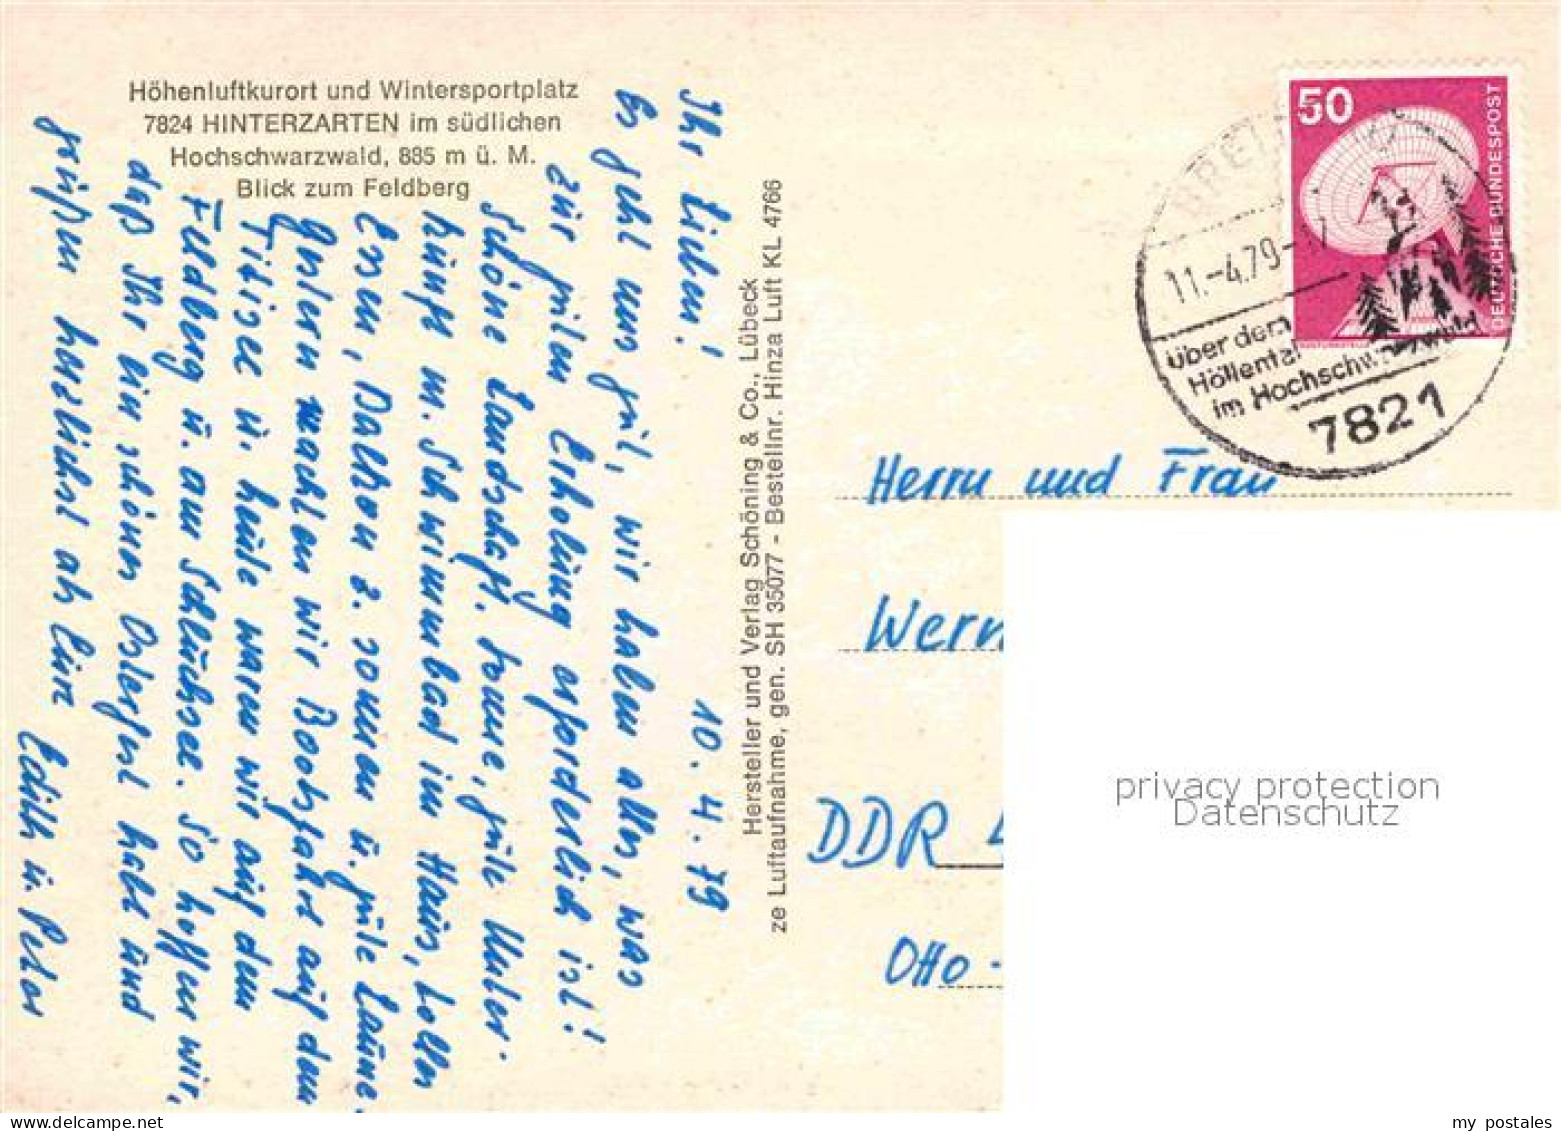 Höhenluftkurort und Wintersportplatz
7824 HINTERZARTEN im südlichen
Hochschwarzwald, 885 m ü. M.
Blick zum Feldberg
10.4.79
Ihr Lieben!
Es geht uns gut, wir haben alles, was
zur guten Erholung erforderlich ist!
Schöne Landschaft. Sonne, gute Unter-
kunft m. Schwimmbad im Haus, tolles
Essen, Balkon z. sonnen u. gute Laune.
Gestern machten wir Bootsfahrt auf dem
Titisee u. heute waren wir auf dem
Feldberg u. am Schluchsee. So hoffen wir,
daß Ihr ein schönes Osterfest habt und
grüßen herzlichst als Eure
Edith u. Peter
Hersteller und Verlag Schöning & Co., Lübeck
ze Luftaufnahme, gen. SH 35077 - Bestellnr. Hinza Luft KL 4766
50
DEUTSCHE BUNDESPOST
BREIT
11.-4.79-17
Über dem
Höllental
im Hochschwarzwald
7821
Herrn und Frau
Wern
DDR
Otto-
privacy protection
Datenschutz
my postales